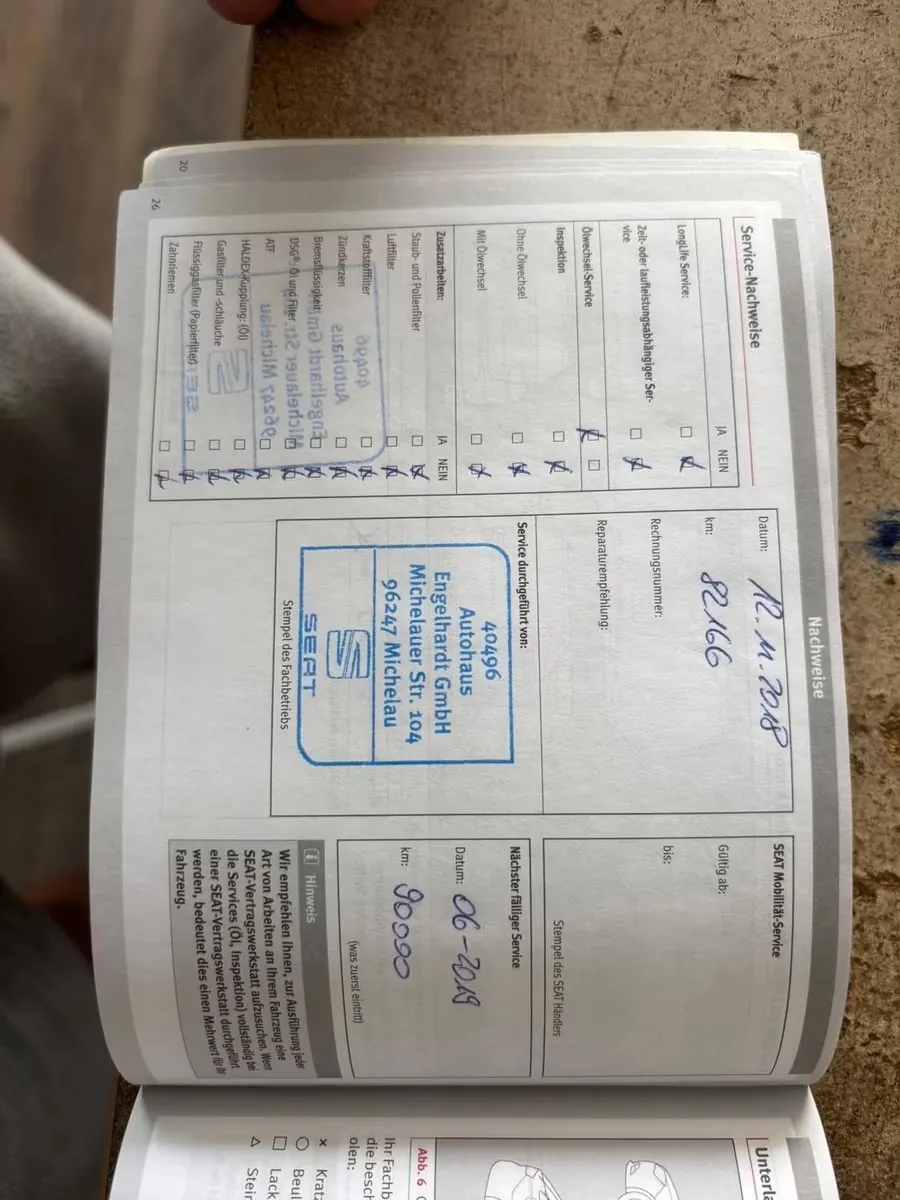 Nachweise
Service-Nachweise
JA NEIN
LongLife Service:
Zeit- oder laufleistungsabhängiger Ser-
vice
Ölwechsel-Service
Inspektion
Ohne Ölwechsel
Mit Ölwechsel
Zusatzarbeiten: JA NEIN
Staub- und Pollenfilter
Luftfilter
Kraftstofffilter
Zündkerzen
Bremsflüssigkeit
DSG®-Öl und Filter
ATF
HALDEX-Kupplung: (Öl)
Gasfilter und -schläuche
Flüssiggasfilter (Papierfilter)
Zahnriemen
Datum: 12.11.2018
km: 82166
Rechnungsnummer:
Reparaturempfehlung:
Service durchgeführt von:
40496
Autohaus
Engelhardt GmbH
Michelauer Str. 104
96247 Michelau
SEAT
Stempel des Fachbetriebs
SEAT Mobilität-Service
Gültig ab:
bis:
Stempel des SEAT Händlers
Nächster fälliger Service
Datum: 06-2019
km: 90000
(was zuerst eintritt)
i Hinweis
Wir empfehlen Ihnen, zur Ausführung jeder
Art von Arbeiten an Ihrem Fahrzeug eine
SEAT-Vertragswerkstatt aufzusuchen. Wenn
die Services (Öl, Inspektion) vollständig bei
einer SEAT-Vertragswerkstatt durchgeführt
werden, bedeutet dies einen Mehrwert für Ihr
Fahrzeug.
26
20
Abb. 6
Ihr Fachb
die besch
olen:
× Kratz
○ Beul
□ Lack
△ Stein